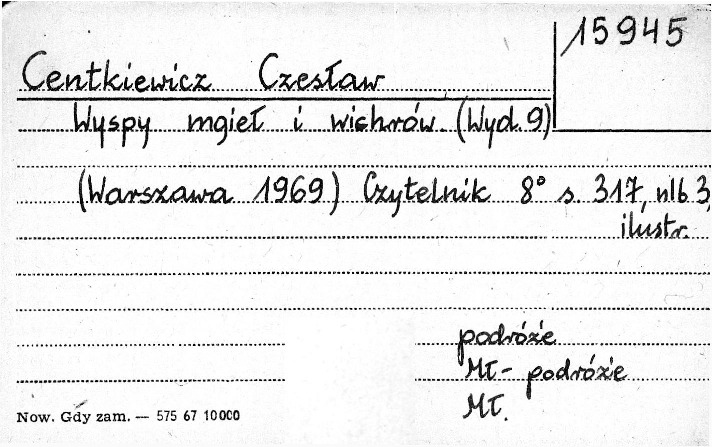 15945
Centkiewicz Czesław
Wyspy mgieł i wichrów. (Wyd. 9)
(Warszawa 1969) Czytelnik 8° s. 317, nlb 3,
ilustr.
podróże
Mł - podróże
Mł.
Now. Gdy zam. — 575 67 10000